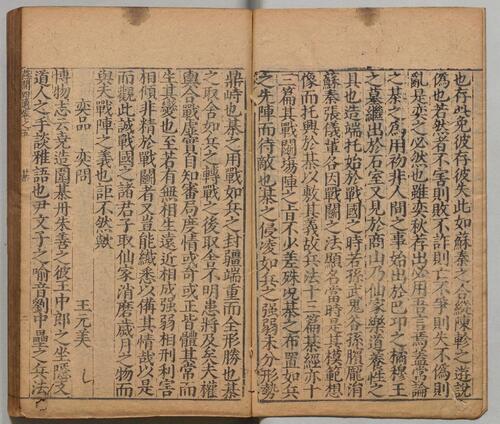 也存此免彼存彼失此如蘇秦之合縱陳軫之遊說
偽也若然者不害則敗不詐則亡不爭則失不偽則
亂是奕之必然也雖奕秋存出必用吾言焉嘗論
之棊之為用初非人間之事始出於巴邛之橘穆王
之墓繼出於石室又見於商山乃仙家樂道養性之
具也迨端托始於戰國之時若孫武鬼谷孫臏龐涓
蘇秦張儀軰各因戰鬬之法顯名當時是其模範想
像而托興於棊以敷其義故兵法十三篇棊經亦十
三篇其戰鬬塲陣之旨不少差殊况棊之布置如兵
之先陣而待敵也棊之侵凌如兵之強弱未分形勢
鼎峙也棊之用戰如兵之封疆端重而全形勝也棊
之取舍如兵之轉戰之後取舍不明患將及矣夫權
輿合戰虛實自審局度情或奇或正皆體其常而
生其變也至若有無相生遠近相成强弱相刑利害
相傾非精於戰鬬者又豈能纖悉以備其情哉以是
而觀此誠戰國之諸君子取仙家消磨歲月之物而
與夫戰陣之義也詎不然歟
奕品 奕問 王元美
博物志云堯造圍棊丹朱善之彼王中郎之坐隱支
道人之手談雅語也尹文子之喻音劉中壘之兵法